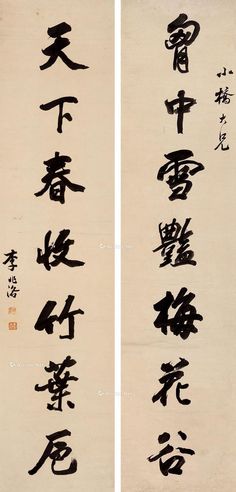 小橋大兄
胷中雪豔梅花谷
天下春收竹葉卮
李兆洛